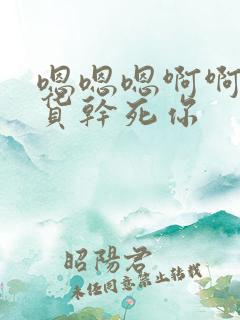 嗯嗯嗯啊啊
寶幹死你
昭陽君
未经同意禁止转载